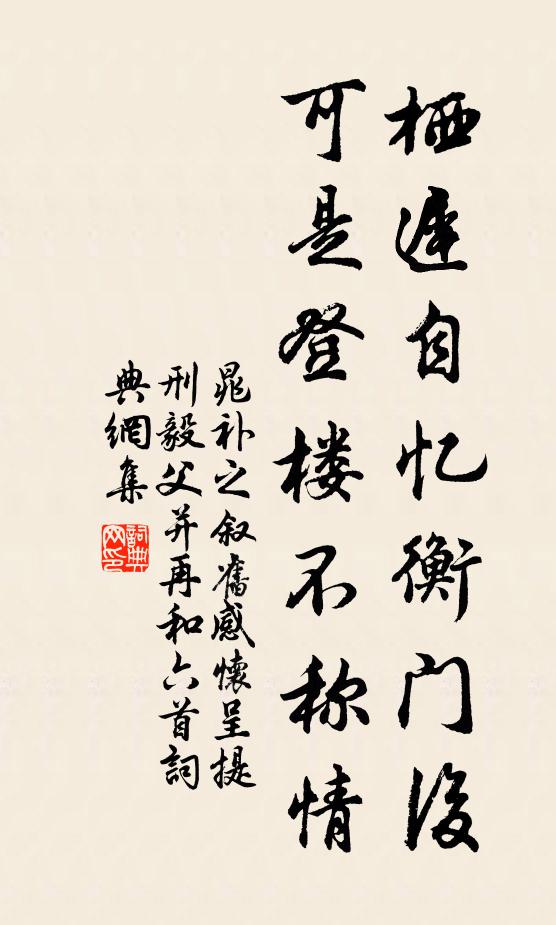 栖遲自忆衡门後
可是登楼不称情
晁补之叙舊感懷呈提
刑毅父并再和六首詞
典網集
詞典網印